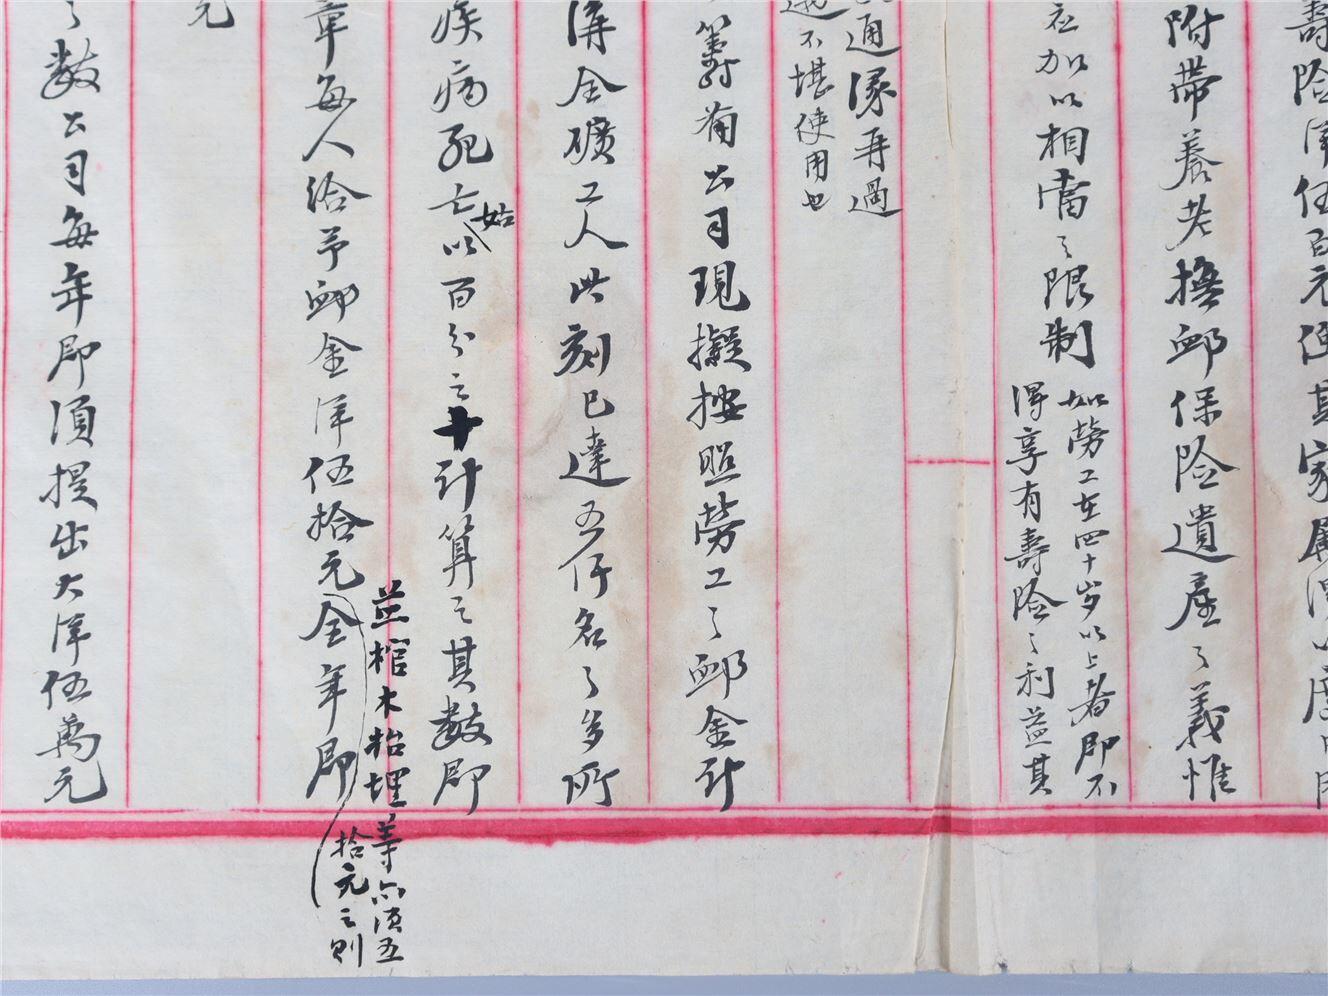 壽險洋伍百元使其家屬得以
附帶養老撫卹保險遺產之義惟
應加以相當之限制
如勞工在四十歲以上者即不
得享有壽險之利益其
通緣再過
不堪使用也
籌有公司現擬按照勞工之卹金計
溝全礦工人此刻已達五仟名之多所
疾病死亡姑以百分之十計算之其數即
章每人給予卹金洋伍拾元全年即
並棺木抬埋等亦須五
拾元之則
元
之數公司每年即須提出大洋伍萬元